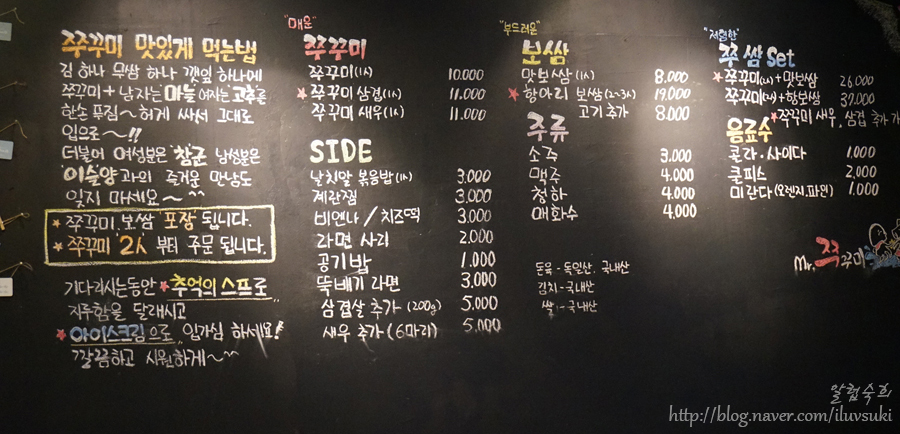 쭈꾸미 맛있게 먹는법
김 하나 무쌈 하나 깻잎 하나에
쭈꾸미 + 남자는 마늘 여자는 고추를
한손 푸짐~하게 싸서 그대로
입으로~!!
더불어 여성분은 참군 남성분은
이슬양 과의 즐거운 만남도
잊지 마세요~^^
★쭈꾸미, 보쌈 포장 됩니다.
★쭈꾸미 2人 부터 주문 됩니다.
기다리시는동안 ★추억의 스프로
지루함을 달래시고
★아이스크림으로 입가심 하세요!
깔끔하고 시원하게~~
"매운"
쭈꾸미
쭈꾸미(1人) 10.000
★쭈꾸미 삼겹(1人) 11.000
쭈꾸미 새우(1人) 11.000
SIDE
날치알 볶음밥(1人) 3.000
계란찜 3.000
비엔나/치즈떡 3.000
라면 사리 2.000
공기밥 1.000
뚝배기 라면 3.000
삼겹살 추가 (200g) 5.000
새우 추가 (6마리) 5.000
"부드러운"
보쌈
맛보쌈(1人) 8.000
★항아리 보쌈(2~3人) 19.000
고기 추가 8.000
주류
소주 3.000
맥주 4.000
청하 4.000
매화수 4.000
돈육 - 독일산, 국내산
김치 - 국내산
쌀 - 국내산
"저렴한"
쭈쌈 Set
★쭈꾸미(2人)+맛보쌈 26.000
쭈꾸미(2人)+항보쌈 37.000
★쭈꾸미 새우, 삼겹 추가 가
음료수
콜라·사이다 1.000
쿨피스 2.000
미란다(오렌지,파인) 1.000
Mr. 쭈꾸미
알럽숙희
http://blog.naver.com/iluvsuki